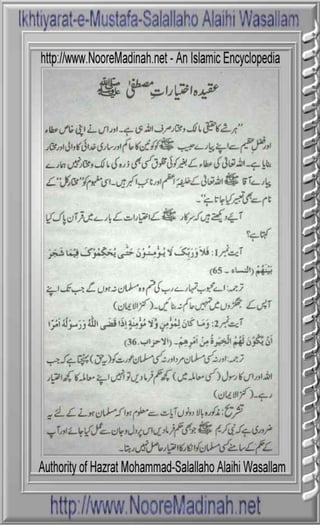 Ikhtiyarat-e-Mustafa-Salallaho Alaihi Wasallam
http://www.NooreMadinah.net - An Islamic Encyclopedia
عقیدہ اختیاراتِ مصطفیٰ ﷺ
”ہر شے کا حقیقی مالک ومختار صرف اللہ ہی ہے۔ اور اس نے اپنی خاص عطاء
اور فضلِ عظیم سے اپنے پیارے حبیب ﷺ کو کونین کا حاکم اور ساری خدائی کا والی اور مختار
بنایا ہے۔ اللہ تعالیٰ کی عطاء کے بغیر کوئی مخلوق کسی بھی ذرہ کی مالک ومختار نہیں ہمارے
پیارے آقا ﷺ اللہ تعالیٰ کے خلیفہ اعظم اور نائب اکبر ہیں۔ اسی مفہوم کو ”مختار کل“ کے
نام سے بھی تعبیر کیا جاتا ہے“۔
آیئے دیکھتے ہیں کہ سرکار ﷺ کے اختیارات کے بارے میں قرآن پاک کیا
کہتا ہے؟
آیت نمبر1: فَلَا وَرَبِّکَ لَا یُؤْمِنُوْنَ حَتّٰی یُحَکِّمُوْکَ فِیْمَا شَجَرَ
بَیْنَهُمْ (النساء ۔ 65)
ترجمہ: اے محبوب تمہارے رب کی قسم وہ مسلمان نہ ہوں گے جب تک اپنے
آپس کے جھگڑوں میں تمہیں حاکم نہ بنائیں۔ (کنزالایمان)
آیت نمبر2: وَمَا کَانَ لِمُؤْمِنٍ وَّلَا مُؤْمِنَةٍ اِذَا قَضَی اللّٰهُ وَرَسُوْلُهٗ اَمْرًا
اَنْ یَّکُوْنَ لَهُمُ الْخِیَرَةُ مِنْ اَمْرِهِمْ۔ (الاحزاب۔36)
ترجمہ: اور نہ کسی مسلمان مرد اور نہ کسی مسلمان عورت کو (یہ حق) پہنچتا ہے کہ جب
اللہ اور اس کا رسول (کسی معاملہ میں) کچھ حکم فرمادیں تو انہیں اپنے معاملہ کا کچھ اختیار
رہے۔ (کنزالایمان)
تشریح: مذکورہ بالا دونوں آیات سے معلوم ہوا کہ مسلمان ہونے کے لئے یہ
ضروری ہے کہ نبی کریم ﷺ جو بھی حکم فرمادیں اس پر دل وجان سے عمل کیا جائے اور آپ
کے حکم کے سامنے کسی مسلمان کو انکار کا اختیار حاصل نہیں رہتا۔
Authority of Hazrat Mohammad-Salallaho Alaihi Wasallam
http://www.NooreMadinah.net